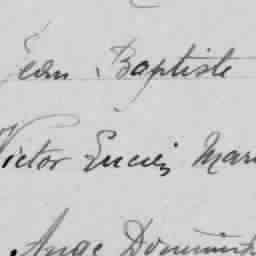 Jean Baptiste
Victor Lucien Mari
Ange Dominik